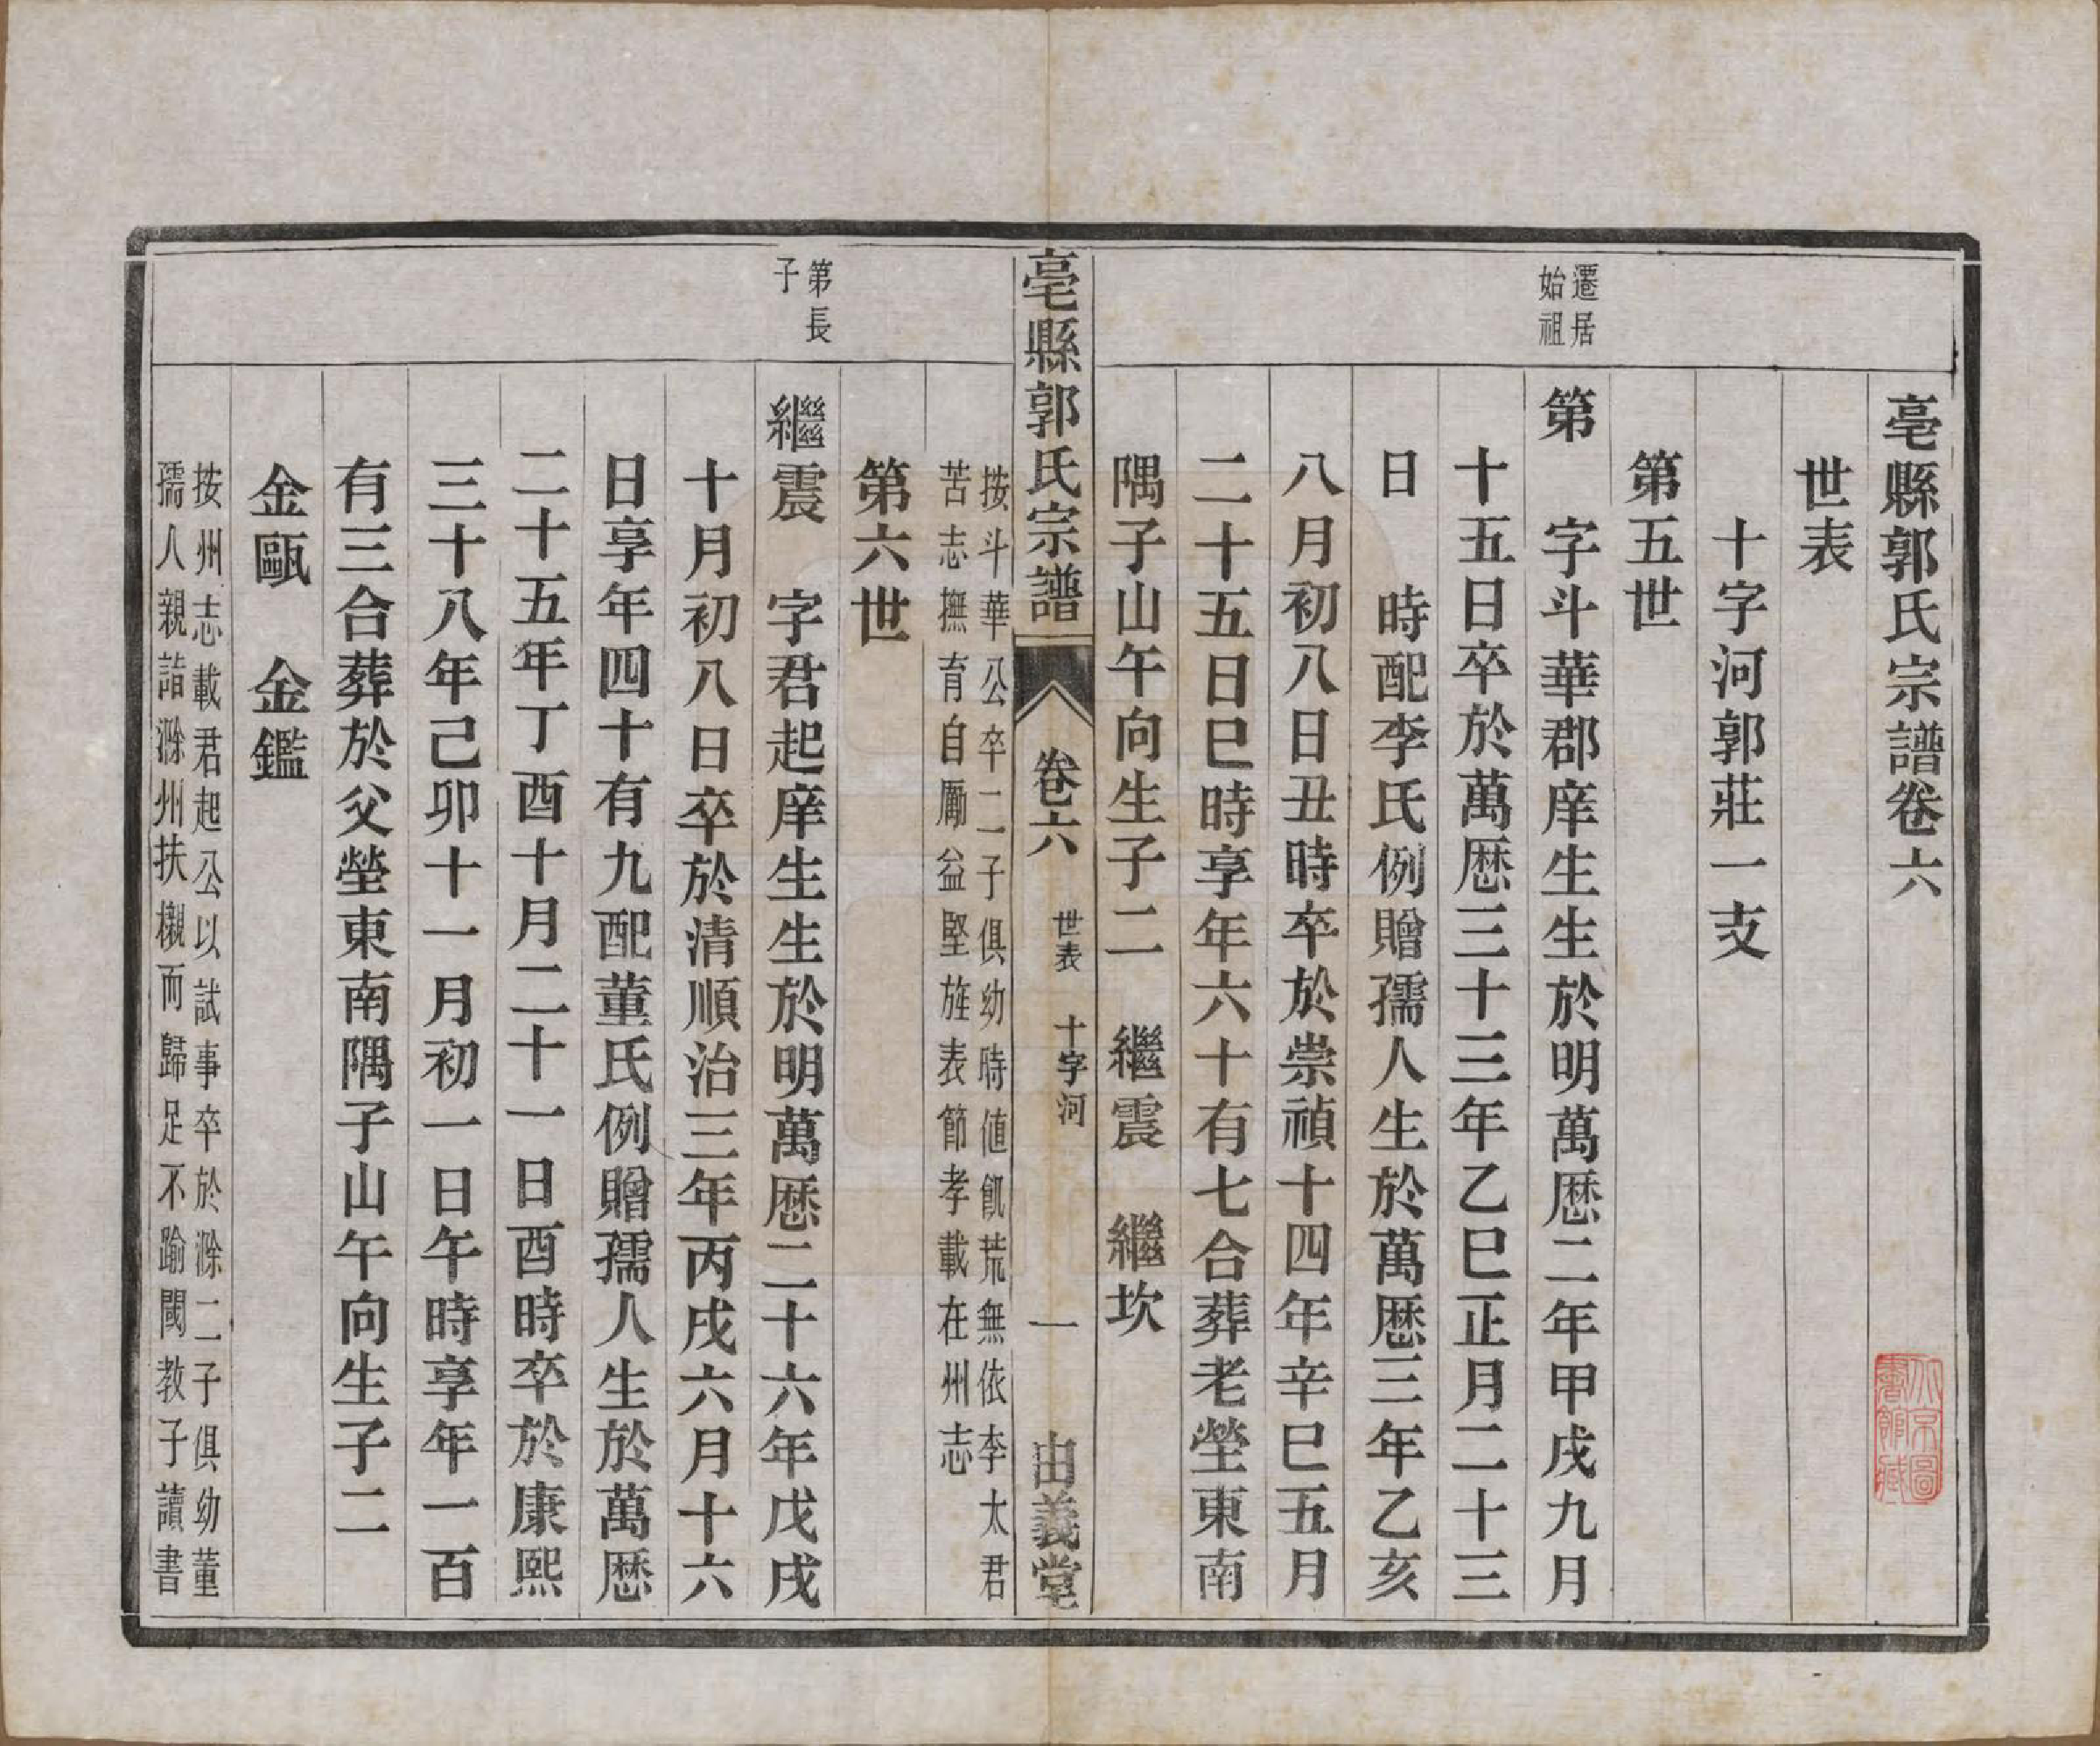 亳縣郭氏宗譜卷六
世表
十字河郭莊一支
第五世
遷居
始祖
第　字斗華郡庠生生於明萬厯二年甲戌九月
十五日卒於萬厯三十三年乙巳正月二十三
日　時配李氏例贈孺人生於萬厯三年乙亥
八月初八日丑時卒於崇禎十四年辛巳五月
二十五日巳時享年六十有七合葬老塋東南
隅子山午向生子二　繼震　繼坎
亳縣郭氏宗譜　卷六　世表　十字河　一　由義堂
按斗華公卒二子俱幼時値飢荒無依李太君
苦志撫育自勵益堅旌表節孝載在州志
第六世
第長
子
繼震　字君起庠生生於明萬厯二十六年戊戌
十月初八日卒於清順治三年丙戌六月十六
日享年四十有九配董氏例贈孺人生於萬厯
二十五年丁酉十月二十一日酉時卒於康熙
三十八年己卯十一月初一日午時享年一百
有三合葬於父塋東南隅子山午向生子二
金甌　金鑑
按州志載君起公以試事卒於滁二子俱幼董
孺人親詣滁州扶櫬而歸足不踰閾教子讀書
北京圖
書館藏